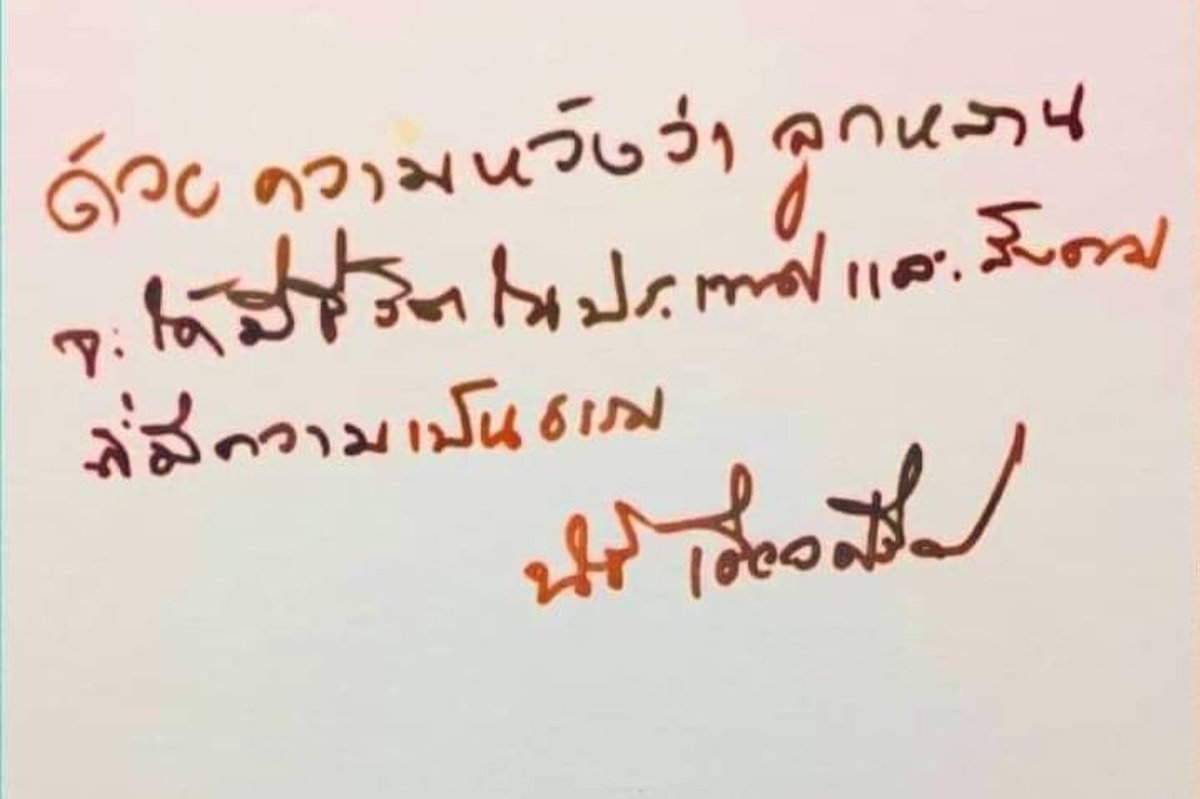 ด้วยความหวังว่า ลูกหลาน
จะได้มีชีวิตในประเทศและสังคม
ที่มีความเป็นธรรม
นิธิ เอียวศรีวงศ์